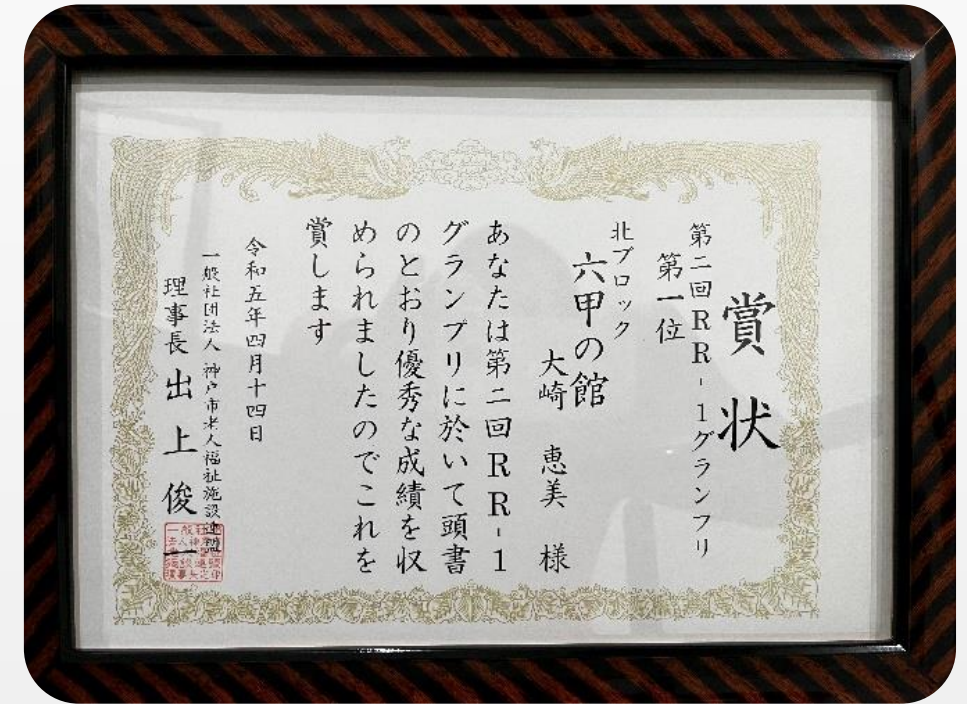 賞状
第二回RR-1グランプリ
第一位
北ブロック
六甲の館
大崎 恵美 様
あなたは第二回RR-1
グランプリに於いて頭書
のとおり優秀な成績を収
められましたのでこれを
賞します
令和五年四月十四日
一般社団法人 神戸市老人福祉施設連盟
理事長 出上俊一